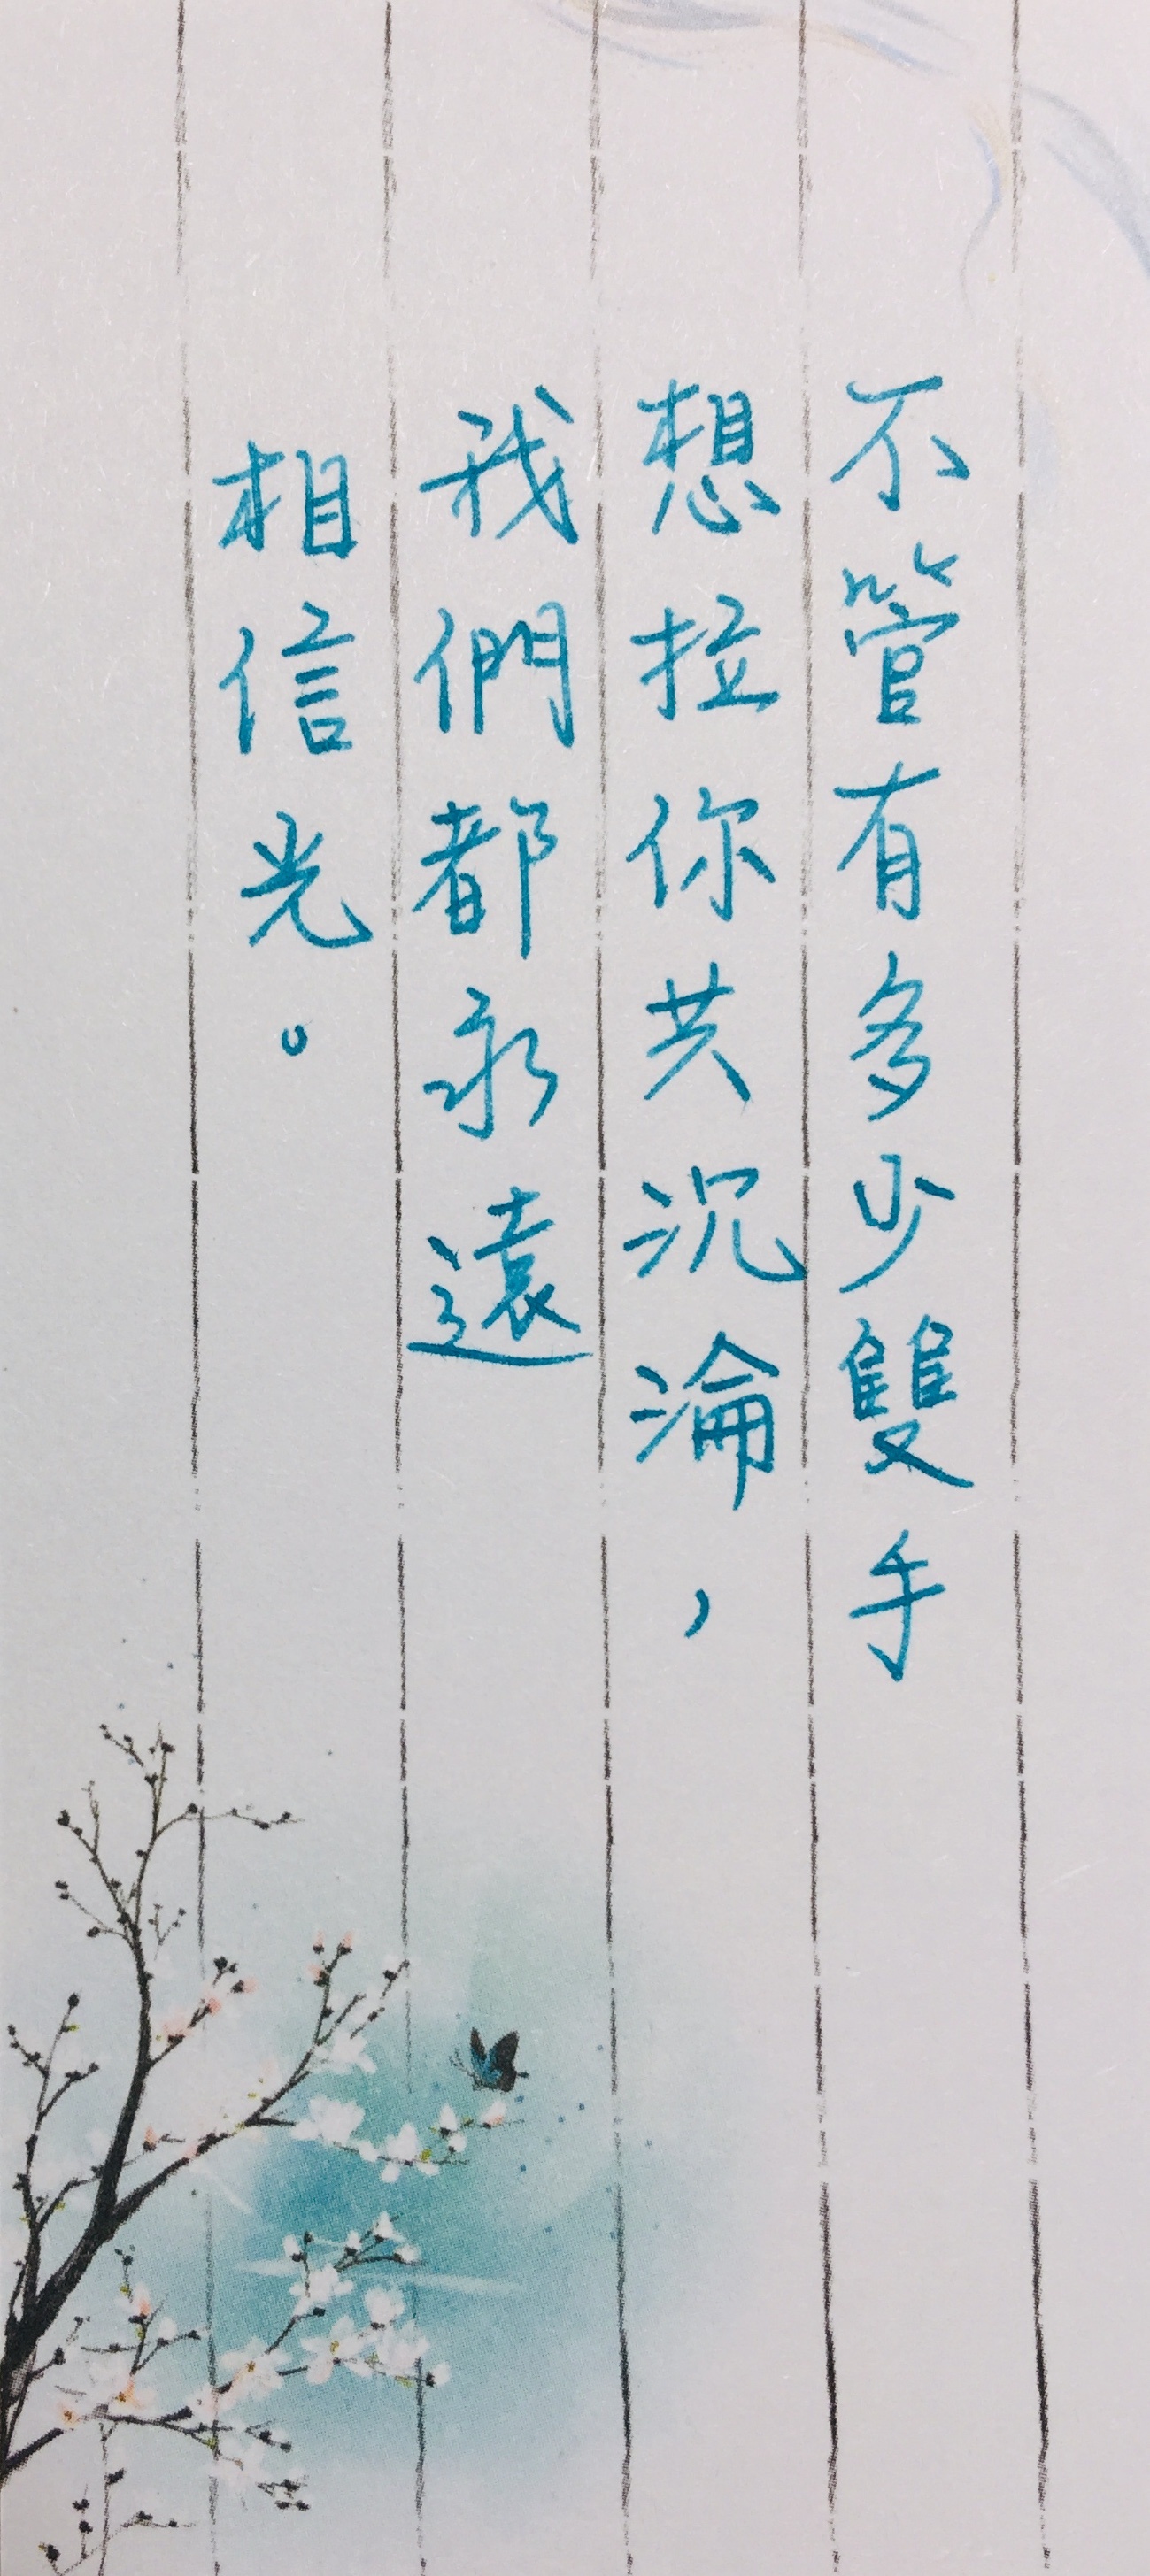 不管有多少雙手
想拉你共沉淪，
我們都永遠
相信光。